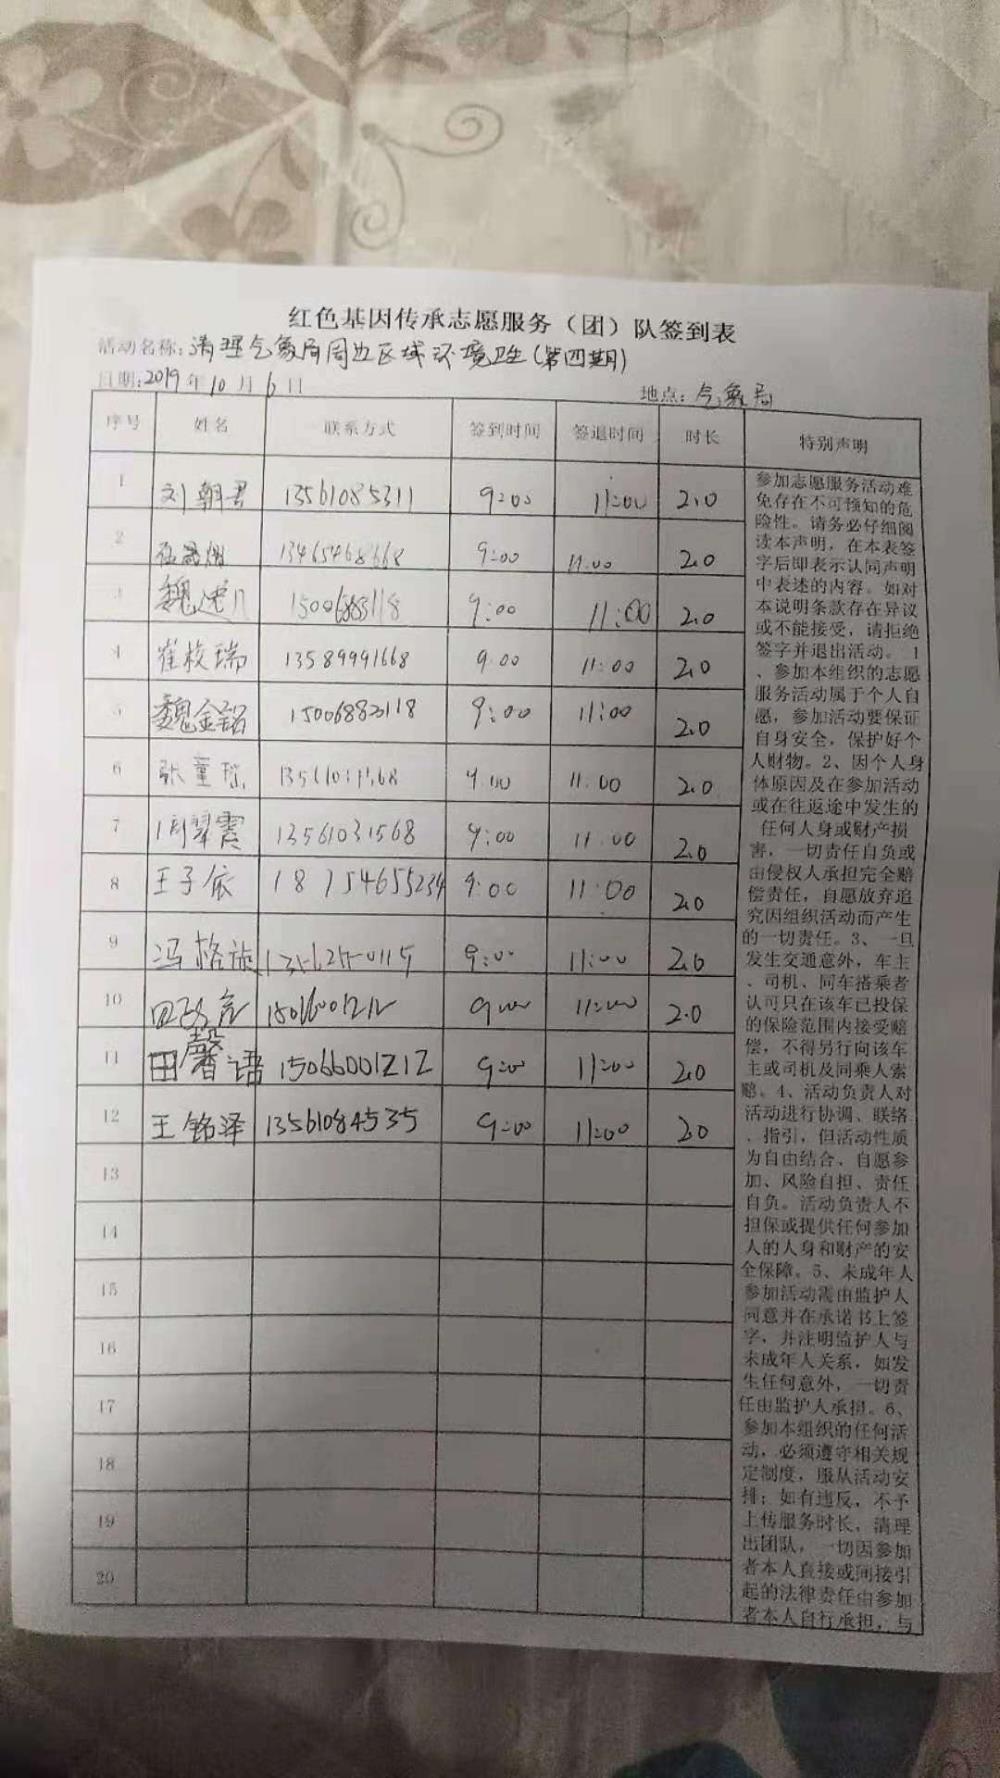 红色基因传承志愿服务（团）队签到表
活动名称:清理气象局周边区域环境卫生(第四期)
日期:2019年10月6日 地点:气象局
序号 姓名 联系方式 签到时间 签退时间 时长 特别声明
1 刘朝君 13561085311 9:00 11:00 2.0
2 13465468668 9:00 11:00 2.0
3 魏 9:00 11:00 2.0
4 崔梭瑞 13589991668 9:00 11:00 2.0
5 魏金铭 15006883118 9:00 11:00 2.0
6 张童瑶 9:00 11:00 2.0
7 周翠霞 13561031568 9:00 11:00 2.0
8 王子依 18754655234 9:00 11:00 2.0
9 冯格 9:00 11:00 2.0
10 田 15066001212 9:00 11:00 2.0
11 田馨语 15066001212 9:00 11:00 2.0
12 王铭泽 13561084535 9:00 11:00 2.0
13
14
15
16
17
18
19
20
参加志愿服务活动难
免存在不可预知的危
险性。请务必仔细阅
读本声明，在本表签
字后即表示认同声明
中表述的内容。如对
本说明条款存在异议
或不能接受，请拒绝
签字并退出活动。1
、参加本组织的志愿
服务活动属于个人自
愿，参加活动要保证
自身安全，保护好个
人财物。2、因个人身
体原因及在参加活动
或在往返途中发生的
任何人身或财产损
害，一切责任自负或
由侵权人承担完全赔
偿责任，自愿放弃追
究因组织活动而产生
的一切责任。3、一旦
发生交通意外，车主
、司机、同车搭乘者
认可只在该车已投保
的保险范围内接受赔
偿，不得另行向该车
主或司机及同乘人索
赔。4、活动负责人对
活动进行协调、联络
、指引，但活动性质
为自由结合、自愿参
加、风险自担、责任
自负。活动负责人不
担保或提供任何参加
人的人身和财产的安
全保障。5、未成年人
参加活动需由监护人
同意并在承诺书上签
字，并注明监护人与
未成年人关系，如发
生任何意外，一切责
任由监护人承担。6、
参加本组织的任何活
动，必须遵守相关规
定制度，服从活动安
排；如有违反，不予
上传服务时长，清理
出团队，一切因参加
者本人直接或间接引
起的法律责任由参加
者本人自行承担，与